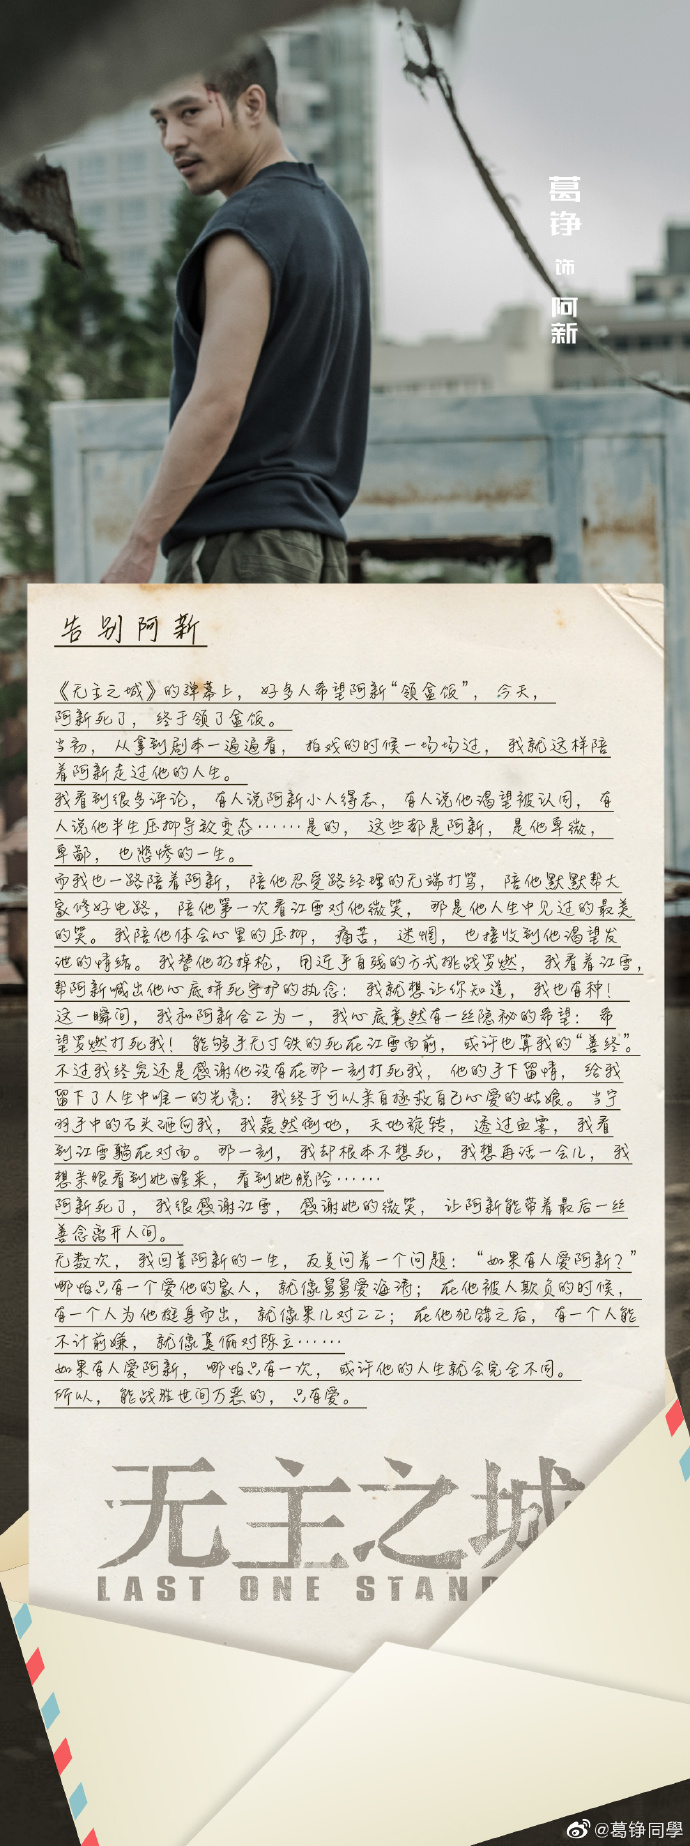 葛铮
饰
阿新
告别阿新
《无主之城》的弹幕上，好多人希望阿新“领盒饭”，今天，
阿新死了，终于领了盒饭。
当初，从拿到剧本一遍遍看，拍戏的时候一场场过，我就这样陪
着阿新走过他的人生。
我看到很多评论，有人说阿新小人得志，有人说他渴望被认同，有
人说他半生压抑导致变态……是的，这些都是阿新，是他卑微，
卑鄙，也悲惨的一生。
而我也一路陪着阿新，陪他忍受路经理的无端打骂，陪他默默帮大
家修好电路，陪他第一次看江雪对他微笑，那是他人生中见过的最美
的笑。我陪他体会心里的压抑，痛苦，迷惘，也接收到他渴望发
泄的情绪。我替他扔掉枪，用近乎自残的方式挑战罗燃，我看着江雪，
帮阿新喊出他心底拼死守护的执念：我就想让你知道，我也有种！
这一瞬间，我和阿新合二为一，我心底竟然有一丝隐秘的希望：希
望罗燃打死我！能够手无寸铁的死在江雪面前，或许也算我的“善终”。
不过我终究还是感谢他没有在那一刻打死我，他的手下留情，给我
留下了人生中唯一的光亮：我终于可以亲自拯救自己心爱的姑娘。当宁
羽手中的石头砸向我，我轰然倒地，天地旋转，透过血雾，我看
到江雪躺在对面。那一刻，我却根本不想死，我想再活一会儿，我
想亲眼看到她醒来，看到她脱险……
阿新死了，我很感谢江雪，感谢她的微笑，让阿新能带着最后一丝
善念离开人间。
无数次，我回首阿新的一生，反复问着一个问题：“如果有人爱阿新？”
哪怕只有一个爱他的家人，就像舅舅爱海涛；在他被人欺负的时候，
有一个人为他挺身而出，就像果儿对二二；在他犯错之后，有一个人能
不计前嫌，就像莫俪对陈立……
如果有人爱阿新，哪怕只有一次，或许他的人生就会完全不同。
所以，能战胜世间万恶的，只有爱。
无主之城
LAST ONE STAND
@葛铮同學